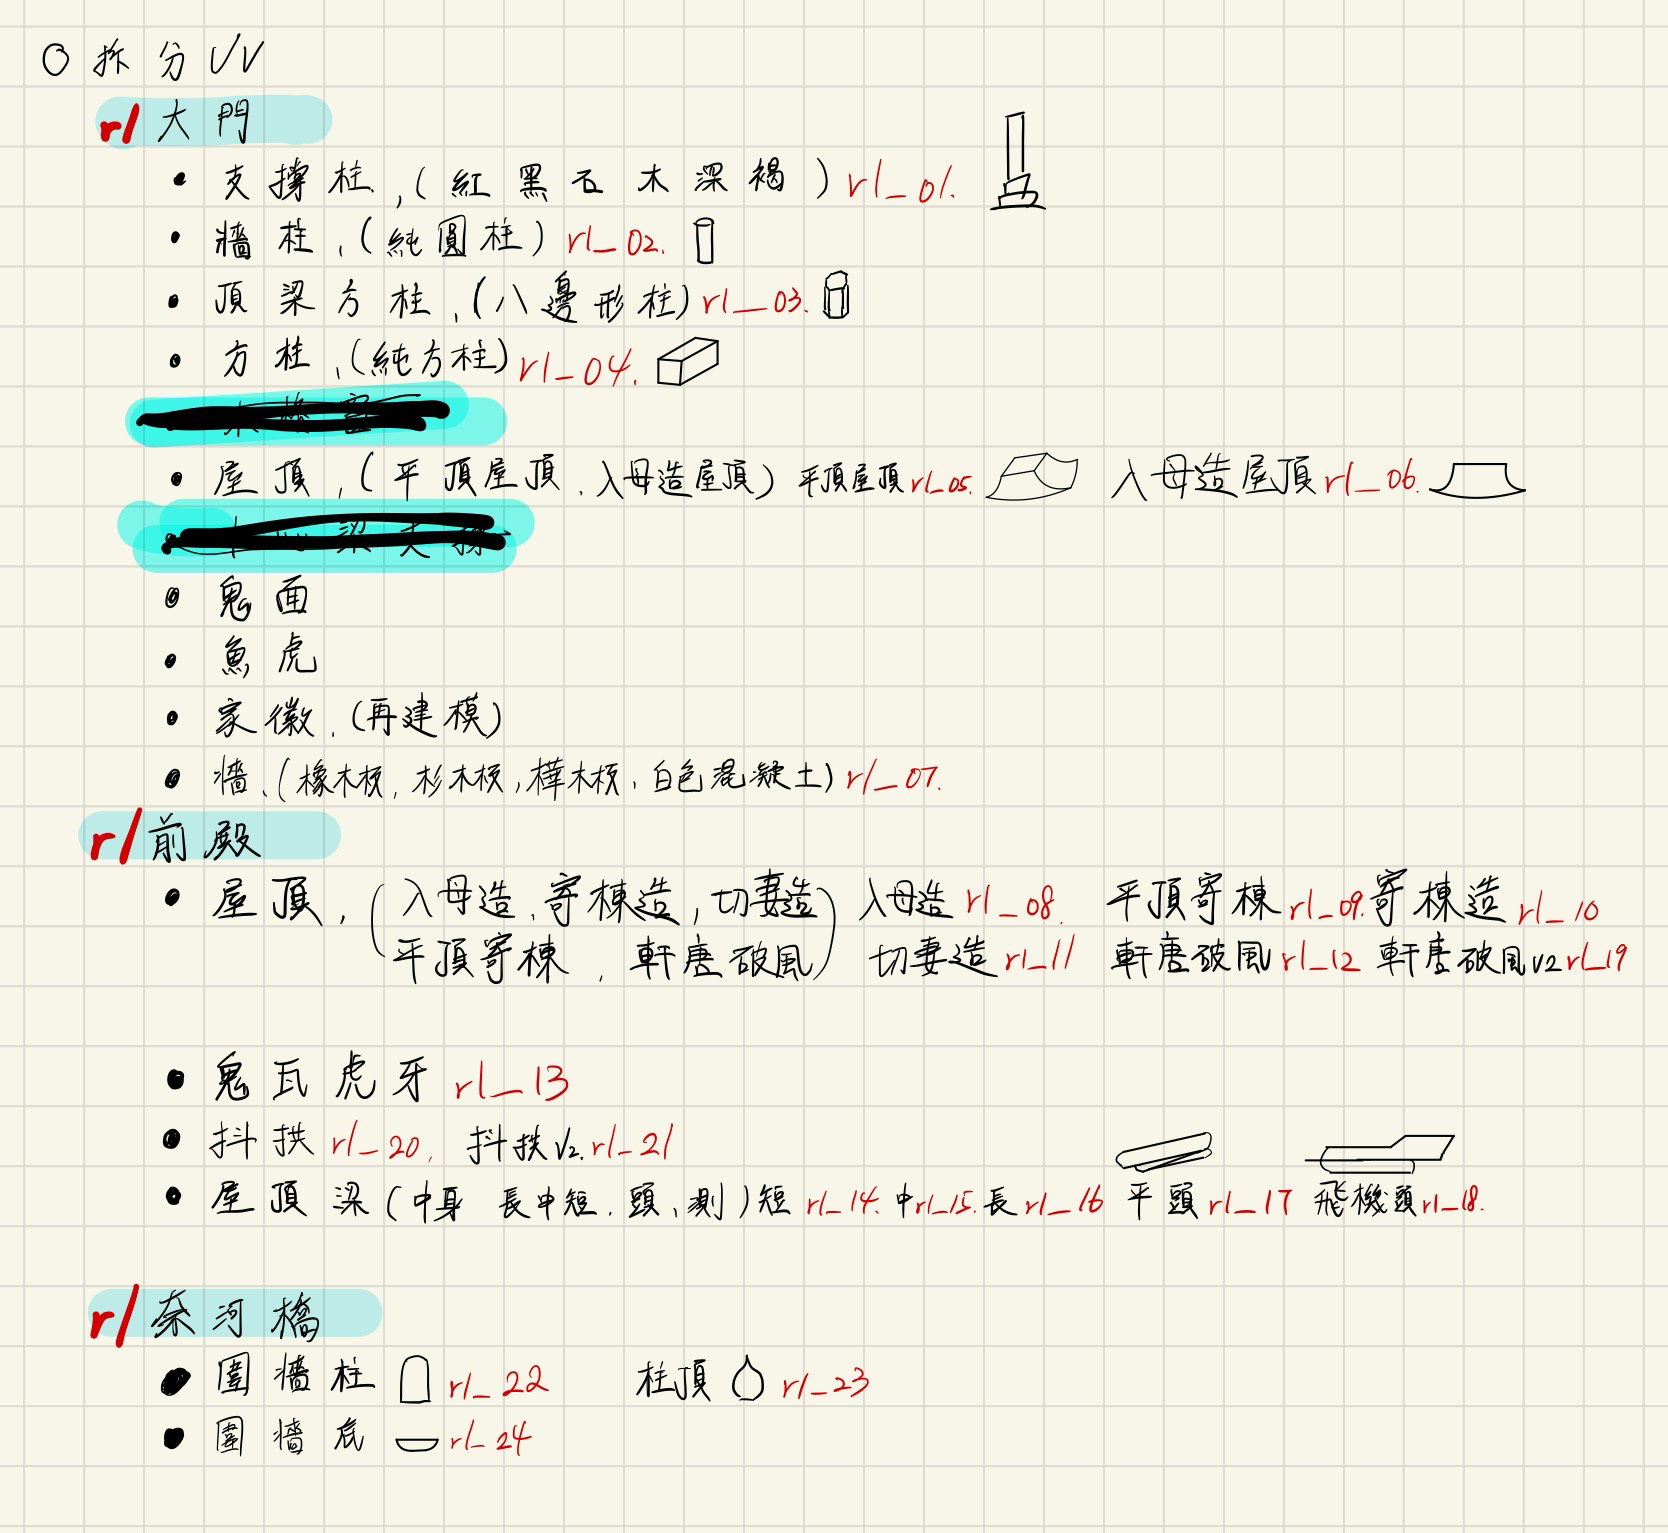 ○ 拆分UV
r/大門
• 支撐柱,(紅黑石木深褐) rl_01.
• 牆柱,(純圓柱) rl_02.
• 頂梁方柱,(八邊形柱) rl_03.
• 方柱,(純方柱) rl_04.
• 屋頂,(平頂屋頂、入母造屋頂) 平頂屋頂 rl_05. 入母造屋頂 rl_06.
• 鬼面
• 魚虎
• 家徽、(再建模)
• 牆、(橡木板, 杉木板, 樺木板, 白色混凝土) rl_07.
r/前殿
• 屋頂,(入母造、寄棟造, 切妻造 入母造 rl_08. 平頂寄棟 rl_09. 寄棟造 rl_10
平頂寄棟, 軒唐破風) 切妻造 rl_11 軒唐破風 rl_12 軒唐破風v2 rl_19
• 鬼瓦虎牙 rl_13
• 抖拱 rl_20. 抖拱V2. rl_21
• 屋頂梁(中身 長中短、頭、測) 短 rl_14. 中 rl_15. 長 rl_16 平頭 rl_17 飛機頭 rl_18.
r/奈河橋
• 圍牆柱 rl_22 柱頂 rl_23
• 圍牆底 rl_24